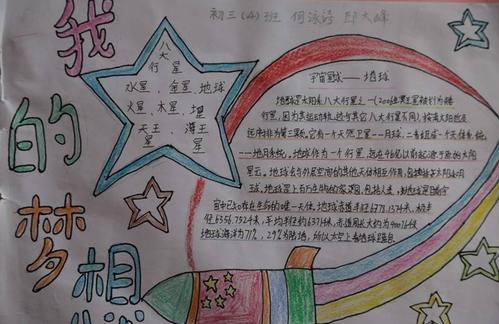 初三(4)班 何泳诗 邱大峰
我的梦想
八大
行星
水星、金星、地球
火星、木星、
天王星
海王星
宇宙星球——地球
地球是太阳系八大行星之一(2006年冥王星被划为矮
行星,因为其运动轨迹与其它八大行星不同),按离太阳由近
及远的次为第三颗,它有一个天然卫星——月球,二者组成一个天体系统
——地月系统。地球作为一个行星,远在46亿以前起源于原始太阳
星云。地球会与外层空间的其他天体相互作用,包括太阳和月
球。地球是上百万生物的家园,包括人类,
宙中已知存在生命的唯一天体。地球赤道半径6378.137千米,极半
径6356.752千米,平均半径约6371千米,赤道周长大约为40076千米
地球海洋为71%,29%为陆地,所以太空上看地球呈蓝色